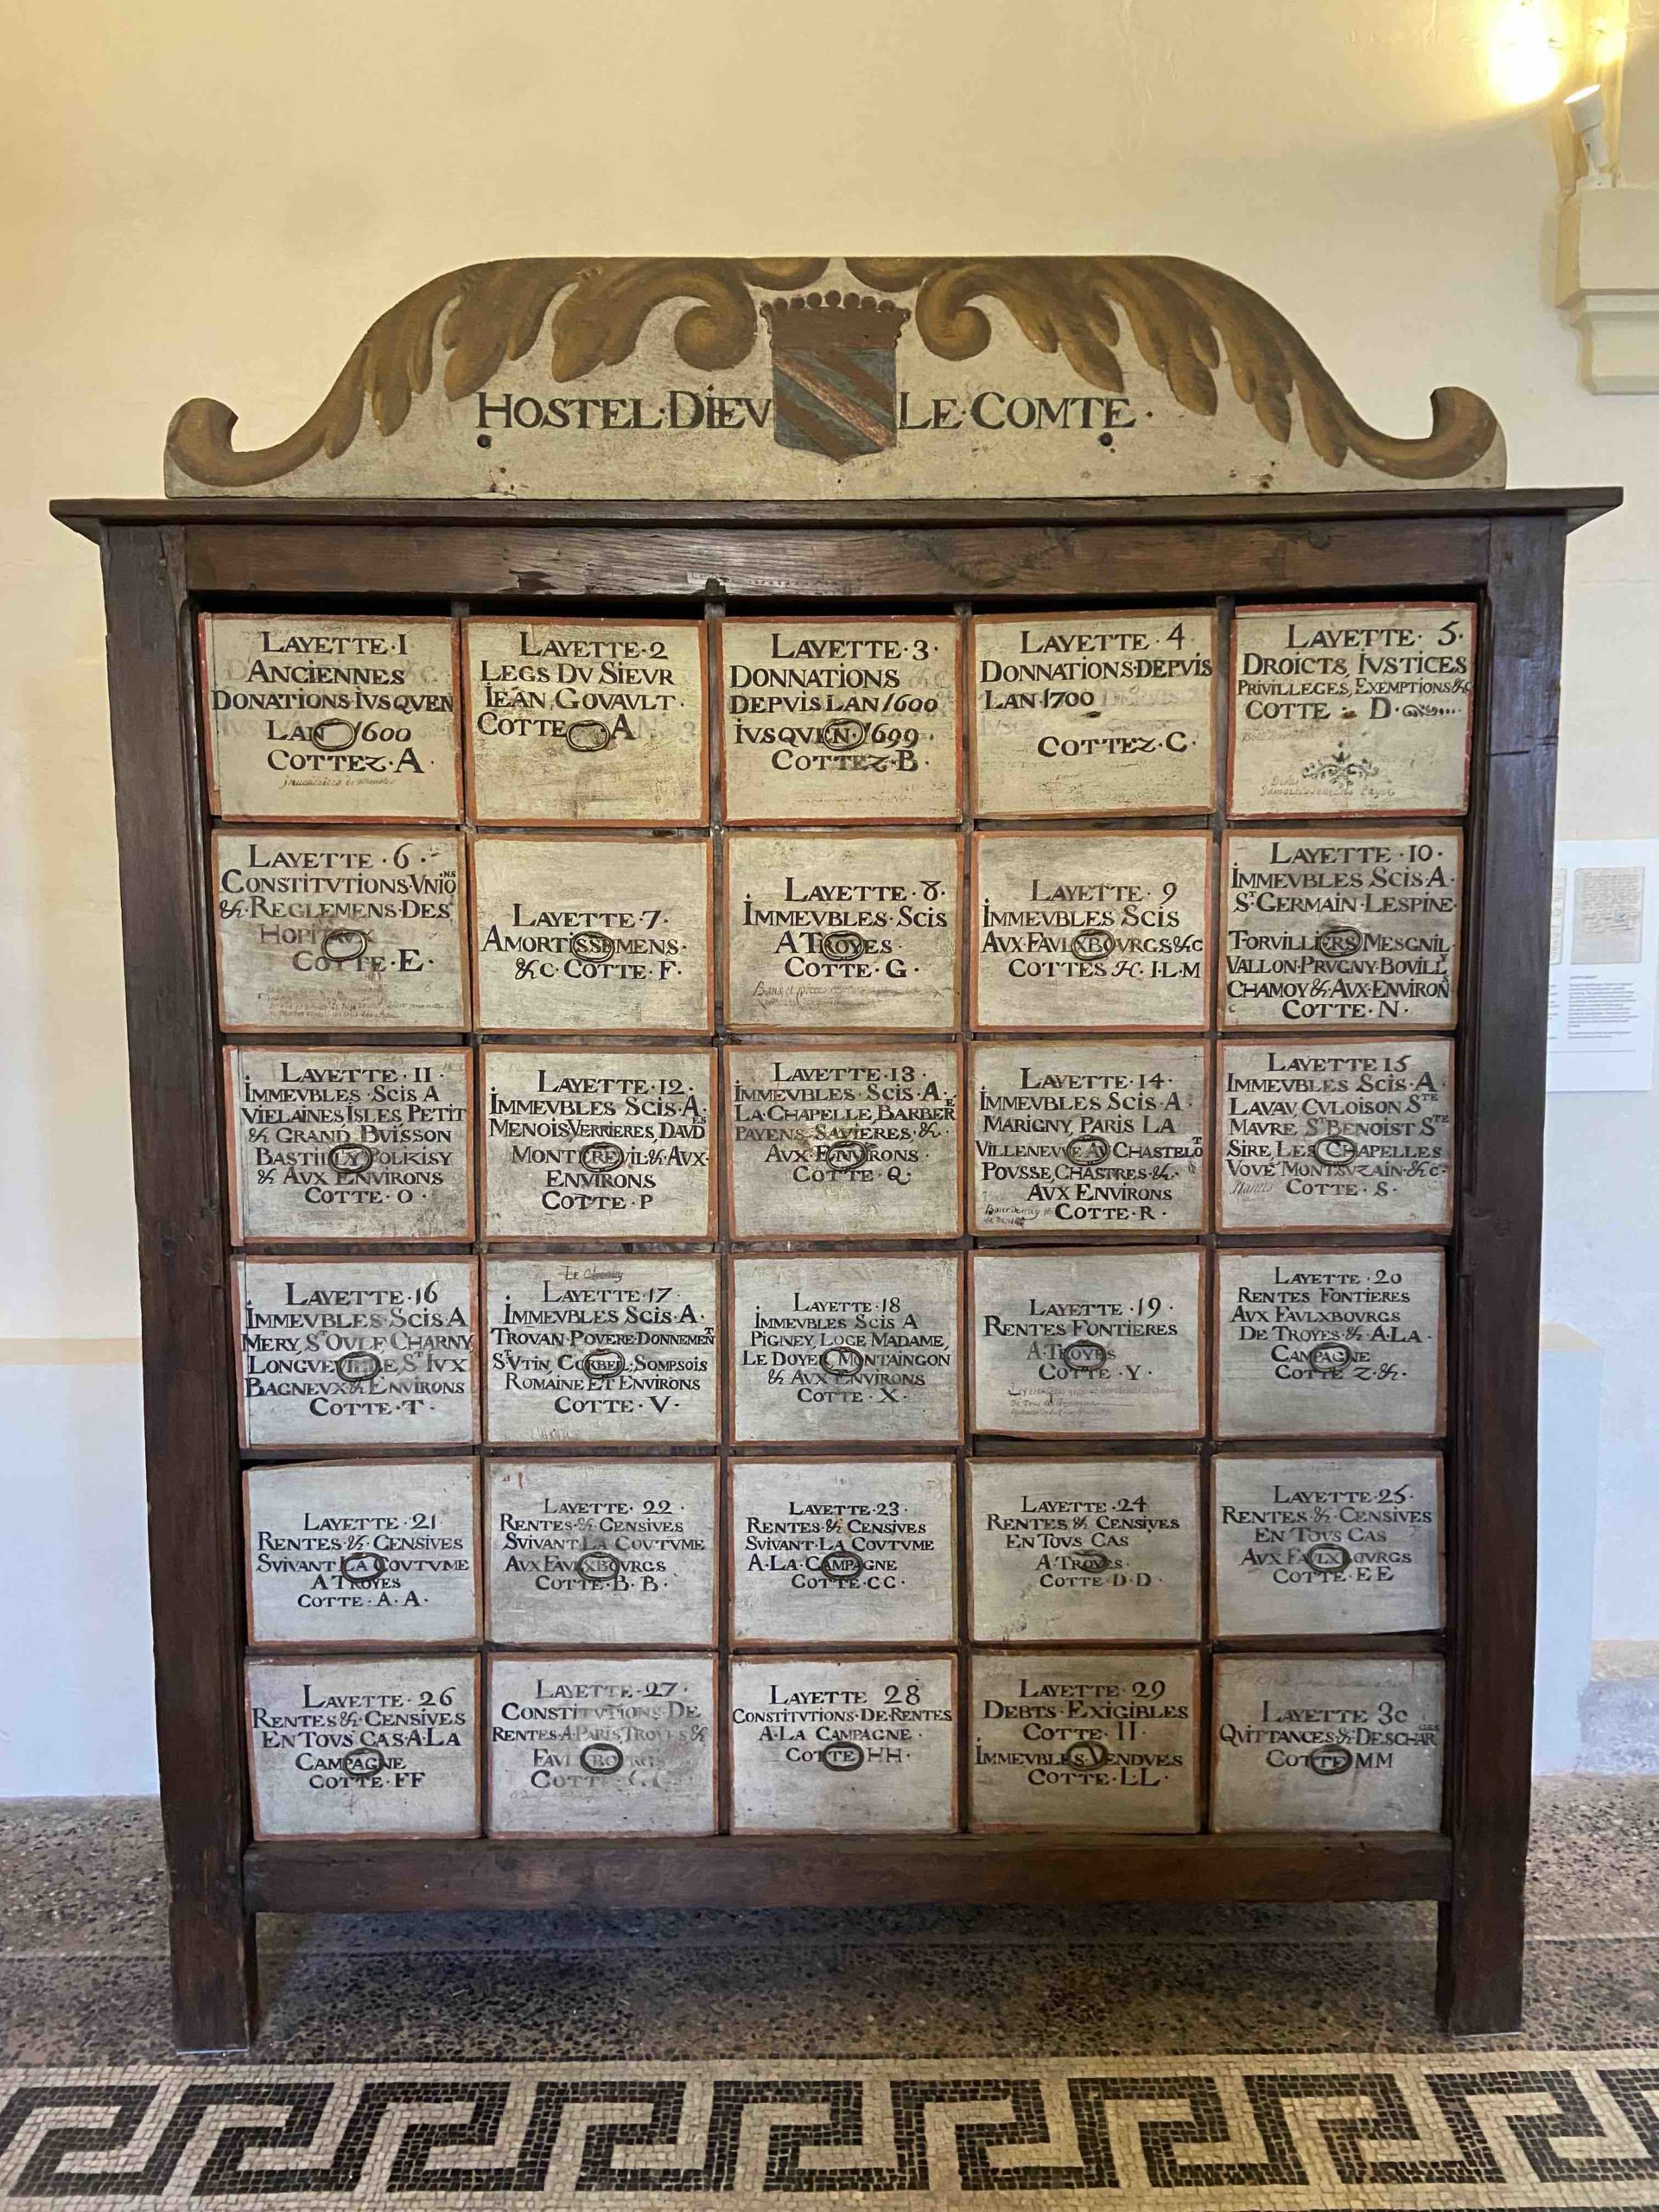 HOSTEL·DIEV LE·COMTE·
LAYETTE·1
ANCIENNES
DONATIONS·IVSQVEN
LAN 1600
COTTEZ·A·
LAYETTE·2
LEGS DV SIEVR
IEAN GOVAVLT·
COTTE A
LAYETTE·3·
DONNATIONS
DEPVIS LAN 1600
IVSQVEN 1699·
COTTEZ·B·
LAYETTE·4
DONNATIONS·DEPVIS
LAN 1700
COTTEZ·C·
LAYETTE·5·
DROICTS, IVSTICES
PRIVILLEGES, EXEMPTIONS &c
COTTE · D·
LAYETTE·6·
CONSTITVTIONS·VNIONS
&·REGLEMENS·DES
HOPITAVX
COTTE·E·
LAYETTE·7·
AMORTISSEMENS·
&C·COTTE·F·
LAYETTE·8·
IMMEVBLES·SCIS
A TROYES·
COTTE·G·
LAYETTE·9
IMMEVBLES SCIS
AVX FAVLXBOVRGS &c
COTTES H·I·L·M
LAYETTE·10·
IMMEVBLES SCIS·A·
ST GERMAIN·LESPINE·
TORVILLIERS MESGNIL·
VALLON·PRVGNY·BOVILLY
CHAMOY &·AVX·ENVIRONS
COTTE·N·
LAYETTE·11·
IMMEVBLES·SCIS A
VIELAINES, ISLES PETIT
& GRAND BVISSON
BASTILLY POLKISY
& AVX ENVIRONS
COTTE·O·
LAYETTE·12·
IMMEVBLES SCIS·A·
MENOIS, VERRIERES, DAVDES
MONTREVIL·&·AVX·
ENVIRONS
COTTE·P
LAYETTE·13·
IMMEVBLES·SCIS·A·
LA·CHAPELLE, BARBEREY
PAYENS·SAVIERES·&·
AVX·ENVIRONS·
COTTE·Q·
LAYETTE·14·
IMMEVBLES SCIS·A·
MARIGNY, PARIS LA
VILLENEVVE AV CHASTELOT
POVSSE, CHASTRES·&·
AVX ENVIRONS
COTTE·R·
LAYETTE 15
IMMEVBLES SCIS·A
LAVAV, CVLOISON STE
MAVRE ST BENOIST STE
SIRE, LES CHAPELLES
VOVE MONTSVZAIN·&·c·
COTTE·S·
LAYETTE·16
IMMEVBLES·SCIS·A
MERY, ST OVLF CHARNY
LONGVEVILLE, ST IVX
BAGNEVX & ENVIRONS
COTTE·T·
LAYETTE·17·
IMMEVBLES SCIS·A·
TROVAN·POVERE·DONNEMENT
ST VTIN, CORBEIL, SOMPSOIS
ROMAINE ET ENVIRONS
COTTE·V·
LAYETTE·18
IMMEVBLES SCIS A
PIGNEY, LOGE MADAME,
LE DOYEN, MONTAINGON
& AVX ENVIRONS
COTTE·X·
LAYETTE·19·
RENTES FONTIERES
A·TROYES
COTTE·Y·
LAYETTE·20
RENTES FONTIERES
AVX FAVLXBOVRGS
DE TROYES·&·A·LA·
CAMPAGNE
COTTE Z·&·
LAYETTE·21·
RENTES·&·CENSIVES
SVIVANT·LA COVTVME
A TROYES
COTTE·A·A·
LAYETTE·22·
RENTES·&·CENSIVES
SVIVANT LA COVTVME
AVX FAVLXBOVRGS
COTTE·B·B·
LAYETTE·23·
RENTES·& CENSIVES
SVIVANT·LA COVTVME
A·LA·CAMPAGNE
COTTE·CC·
LAYETTE·24
RENTES & CENSIVES
EN TOVS CAS
A TROYES·
COTTE·D·D·
LAYETTE·25·
RENTES·&·CENSIVES
EN TOVS CAS
AVX FAVLXBOVRGS
COTTE·EE
LAYETTE·26
RENTES &·CENSIVES
EN TOVS CAS·A·LA
CAMPAGNE
COTTE·FF
LAYETTE·27·
CONSTITVTIONS·DE
RENTES·A·PARIS, TROYES &
LAYETTE 28
CONSTITVTIONS·DE·RENTES
A·LA CAMPAGNE·
COTTE HH·
LAYETTE 29
DEBTS·EXIGIBLES
COTTE·II·
IMMEVBLES VENDVES
COTTE·LL·
LAYETTE 30
QVITTANCES·&·DESCHARGES
COTTE MM